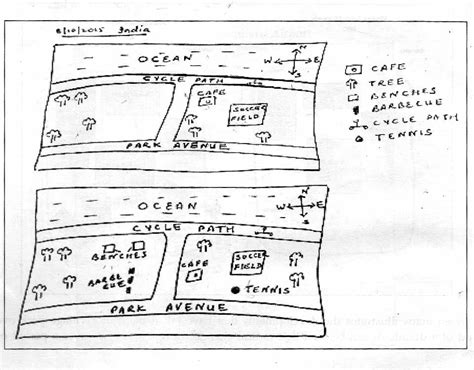 8/10/2015 India
OCEAN
N
W E
S
CYCLE PATH
CAFE
SOCCER
FIELD
PARK AVENUE
CAFE
TREE
BENCHES
BARBECUE
CYCLE PATH
TENNIS
OCEAN
N
W E
S
CYCLE PATH
BENCHES
CAFE
SOCCER
FIELD
BARBE
CUE
TENNIS
PARK AVENUE